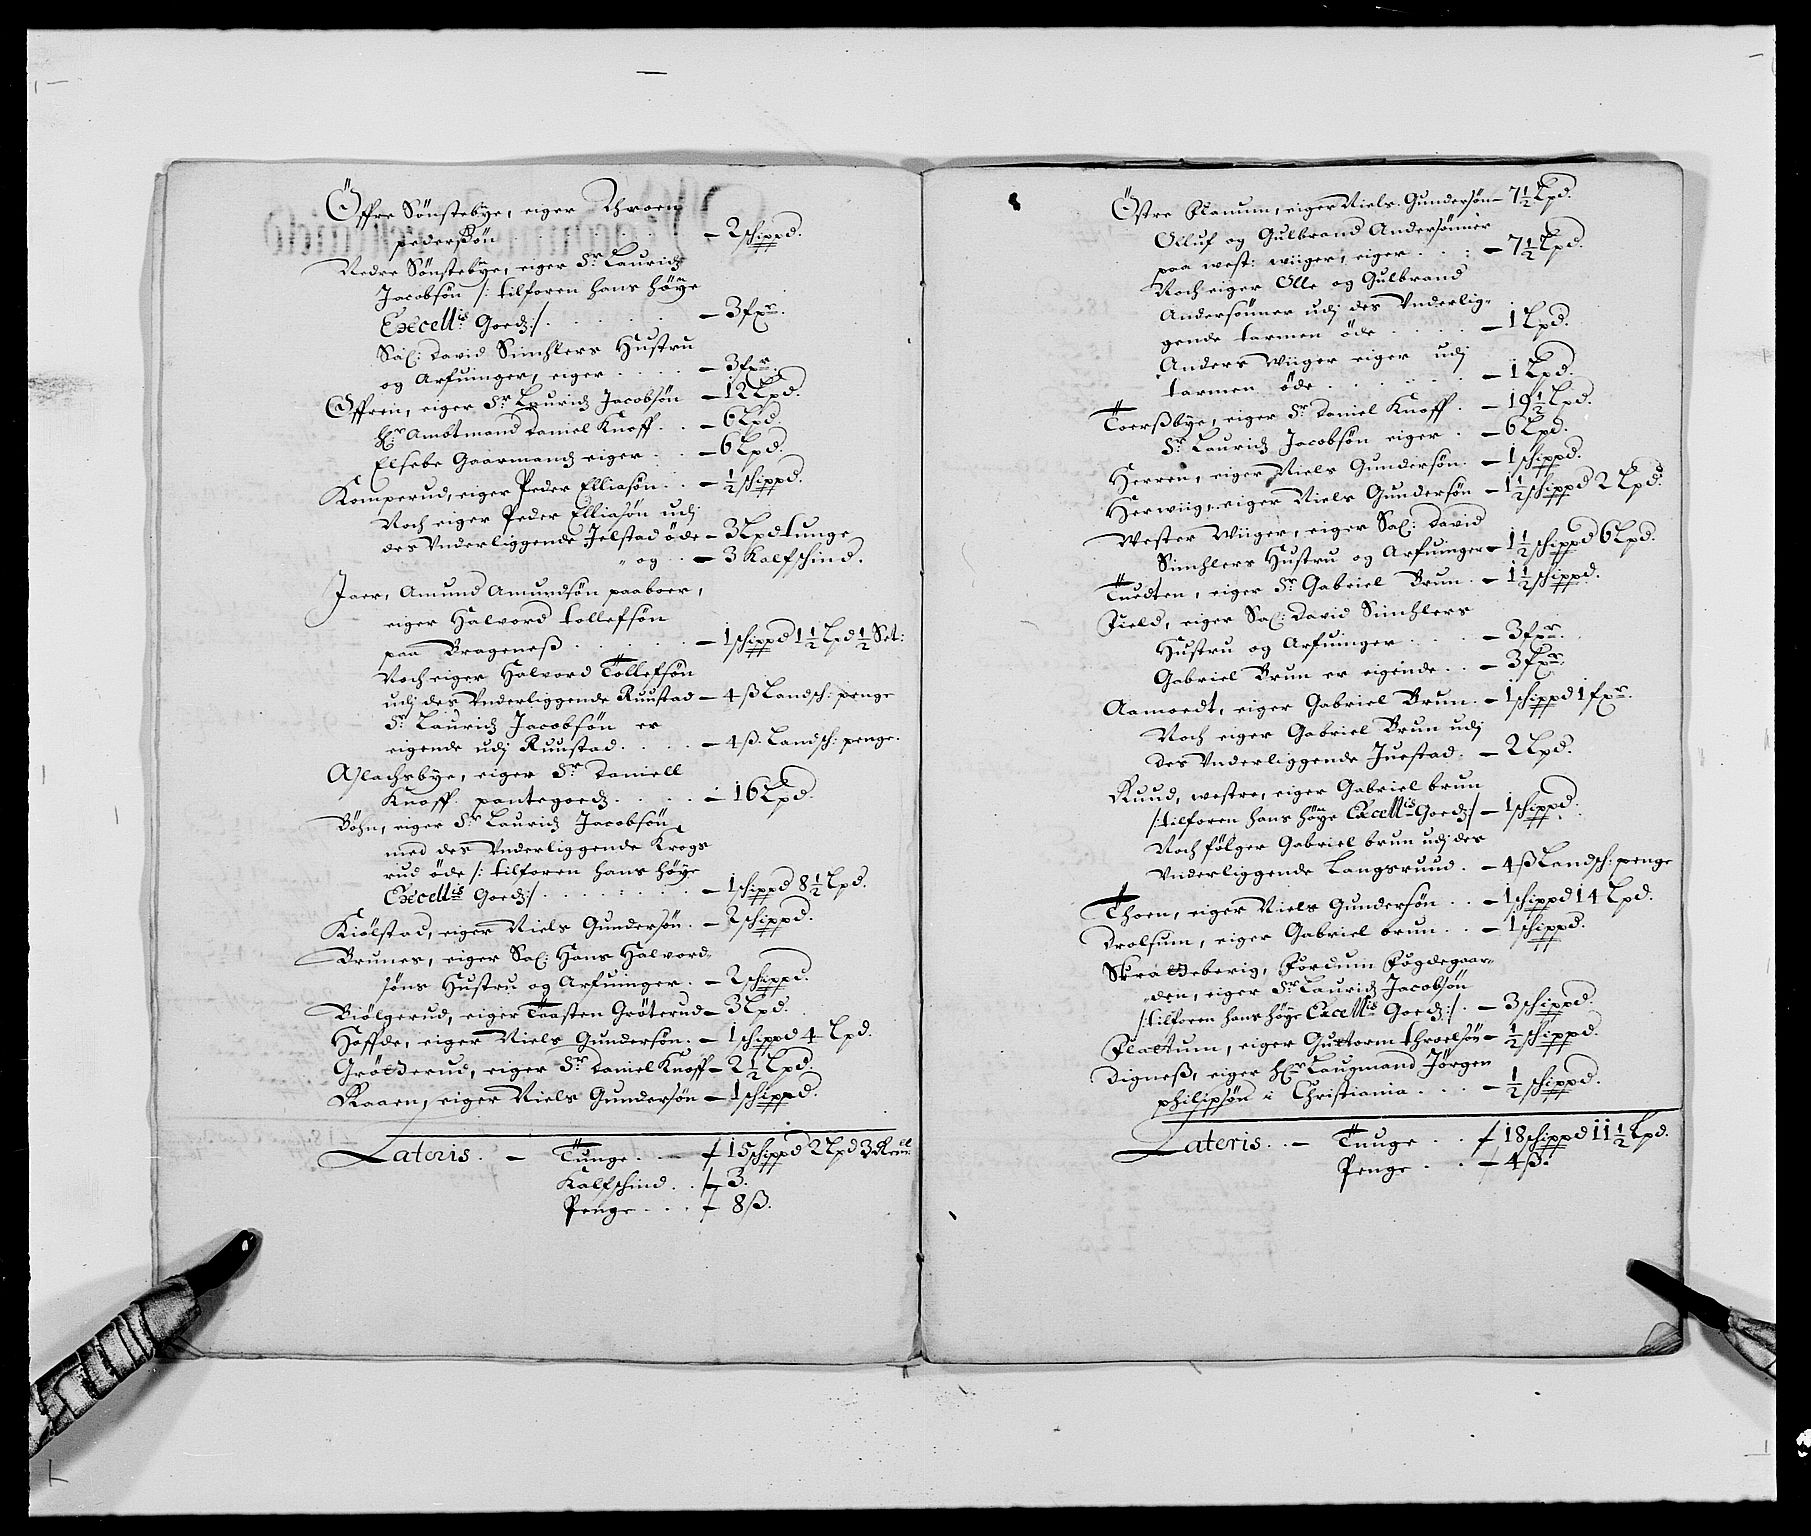 Öffre Sönstebye, eiger Throen
pederßön . . . – 2 schippd.
Nedre Sönstebye, eiger Sr Lauridz
Jacobsön /: tilforen hans höÿe
Excellis Goedz :/ . . . . . – 3 fxr.
Sal: David Simhlers Hustru
og Arfuinger, eiger . . . . – 3 fxr.
Öffren, eiger Sr Lauridz Jacobsön – 12 Lpd.
Hr Ambtmand Daniel Knoff . . – 6 Lpd.
Elsebe Gaarmandz eiger . . – 6 Lpd.
Komperud, eiger Peder Elliasön . . – ½ schippd.
Noch eiger Peder Elliasön udj
des Underliggende Jelstad öde – 3 Lpd tunge
" og . . – 3 Kalfschind.
Jaer, Amund Amundsön paaboer,
eiger Halvord tollefsön
paa Brageneß . . . . – 1 schippd 1½ Lpd ½ Set:
Noch eiger Halvord Tollefsön
udj des Underliggende Ruustad – 4 ß Landsch: penge
Sr Lauridz Jacobsön er
eigende udj Ruustad . . . . – 4 ß. Landsch: penge.
Aslachsbye, eiger Sr Daniell
Knoff. pantegoedz . . . . – 16 Lpd.
Böhn, eiger Sr Lauridz Jacobsön
med des Underliggende Krogs
rud öde /: tilforen hans höÿe
Excellis Goedz :/ . . . . . . . – 1 schippd 8½ Lpd.
Kiölstad, eiger Niels Gundersön. – 2 schippd.
Brunes, eiger Sal: Hans Halvord=
söns Hustru og Arfuinger. – 2 schippd.
Biölgerud, eiger Taasten Gröterud – 3 Lpd.
Hoffde, eiger Niels Gundersön. – 1 schippd 4 Lpd.
Grötterud, eiger Sr Daniel Knoff – 2½ Lpd.
Raaen, eiger Niels Gundersön – 1 schippd.
Lateris . – Tunge . . – 15 schippd 2 Lpd
Kalfschind . . – 3.
Penge . . . – 8 ß.
Östre Flanum, eiger Niels Gundersön – 7½ Lpd.
Olluf og Gulbrand Andersönner
paa west: wiiger, eiger . . : – 7½ Lpd.
Noch eiger Olle og Gulbrand
Andersönner udj des Underlig=
gende tarmen öde . . . . – 1 Lpd.
Anders Wiiger eiger udj
tarmen öde . . . . . . – 1 Lpd.
Toerßbye, eiger Sr Daniel Knoff . – 19⅓ Lpd.
Sr Lauridz Jacobsön eiger . – 6 Lpd.
Herren, eiger Niels Gundersön. – 1 schippd.
Herwiig, eiger Niels Gundersön – 1½ schippd 2 Lpd.
Wester Wiiger, eiger Sal: David
Simhlers Hustru og Arfuinger – 1½ schippd 6 Lpd.
Tuedten, eiger Sr Gabriel Brun . – 1½ schippd.
Field, eiger Sal: David Simhlers
Hustru og Arfuinger . . . . – 3 fxr.
Gabriel Brun er eigende . . – 3 fxr.
Aamoedt, eiger Gabriel Brun . – 1 schippd 1 fxr.
Noch eiger Gabriel Brun udj
des Underliggende Juestad – 2 Lpd.
Ruud, westre, eiger Gabriel brun
/: tilforen hans höÿe Excellis Goedz :/ – 1 schippd.
Noch fölger Gabriel brun udj des
Underliggende Langsruud . – 4 ß Landsch: penge
Thoen, eiger Niels Gundersön . . – 1 schippd 14 Lpd.
Drolsum, eiger Gabriel brun . . – 1 schippd.
Skralleberig, Fordum Fogdegaar=
den, eiger Sr Lauridz Jacobsön
/: tilforen hans höÿe Excellis Goedz :/ . – 3 schippd.
Flattum, eiger Guttorm throelsön – ½ schippd.
Digneß, eiger Hr Laugmand Jörgen
philipsön i Christiania . . . . – ½ schippd.
Lateris . . – Tunge . . – 18 schippd 11½ Lpd.
Penge . . – 4 ß.